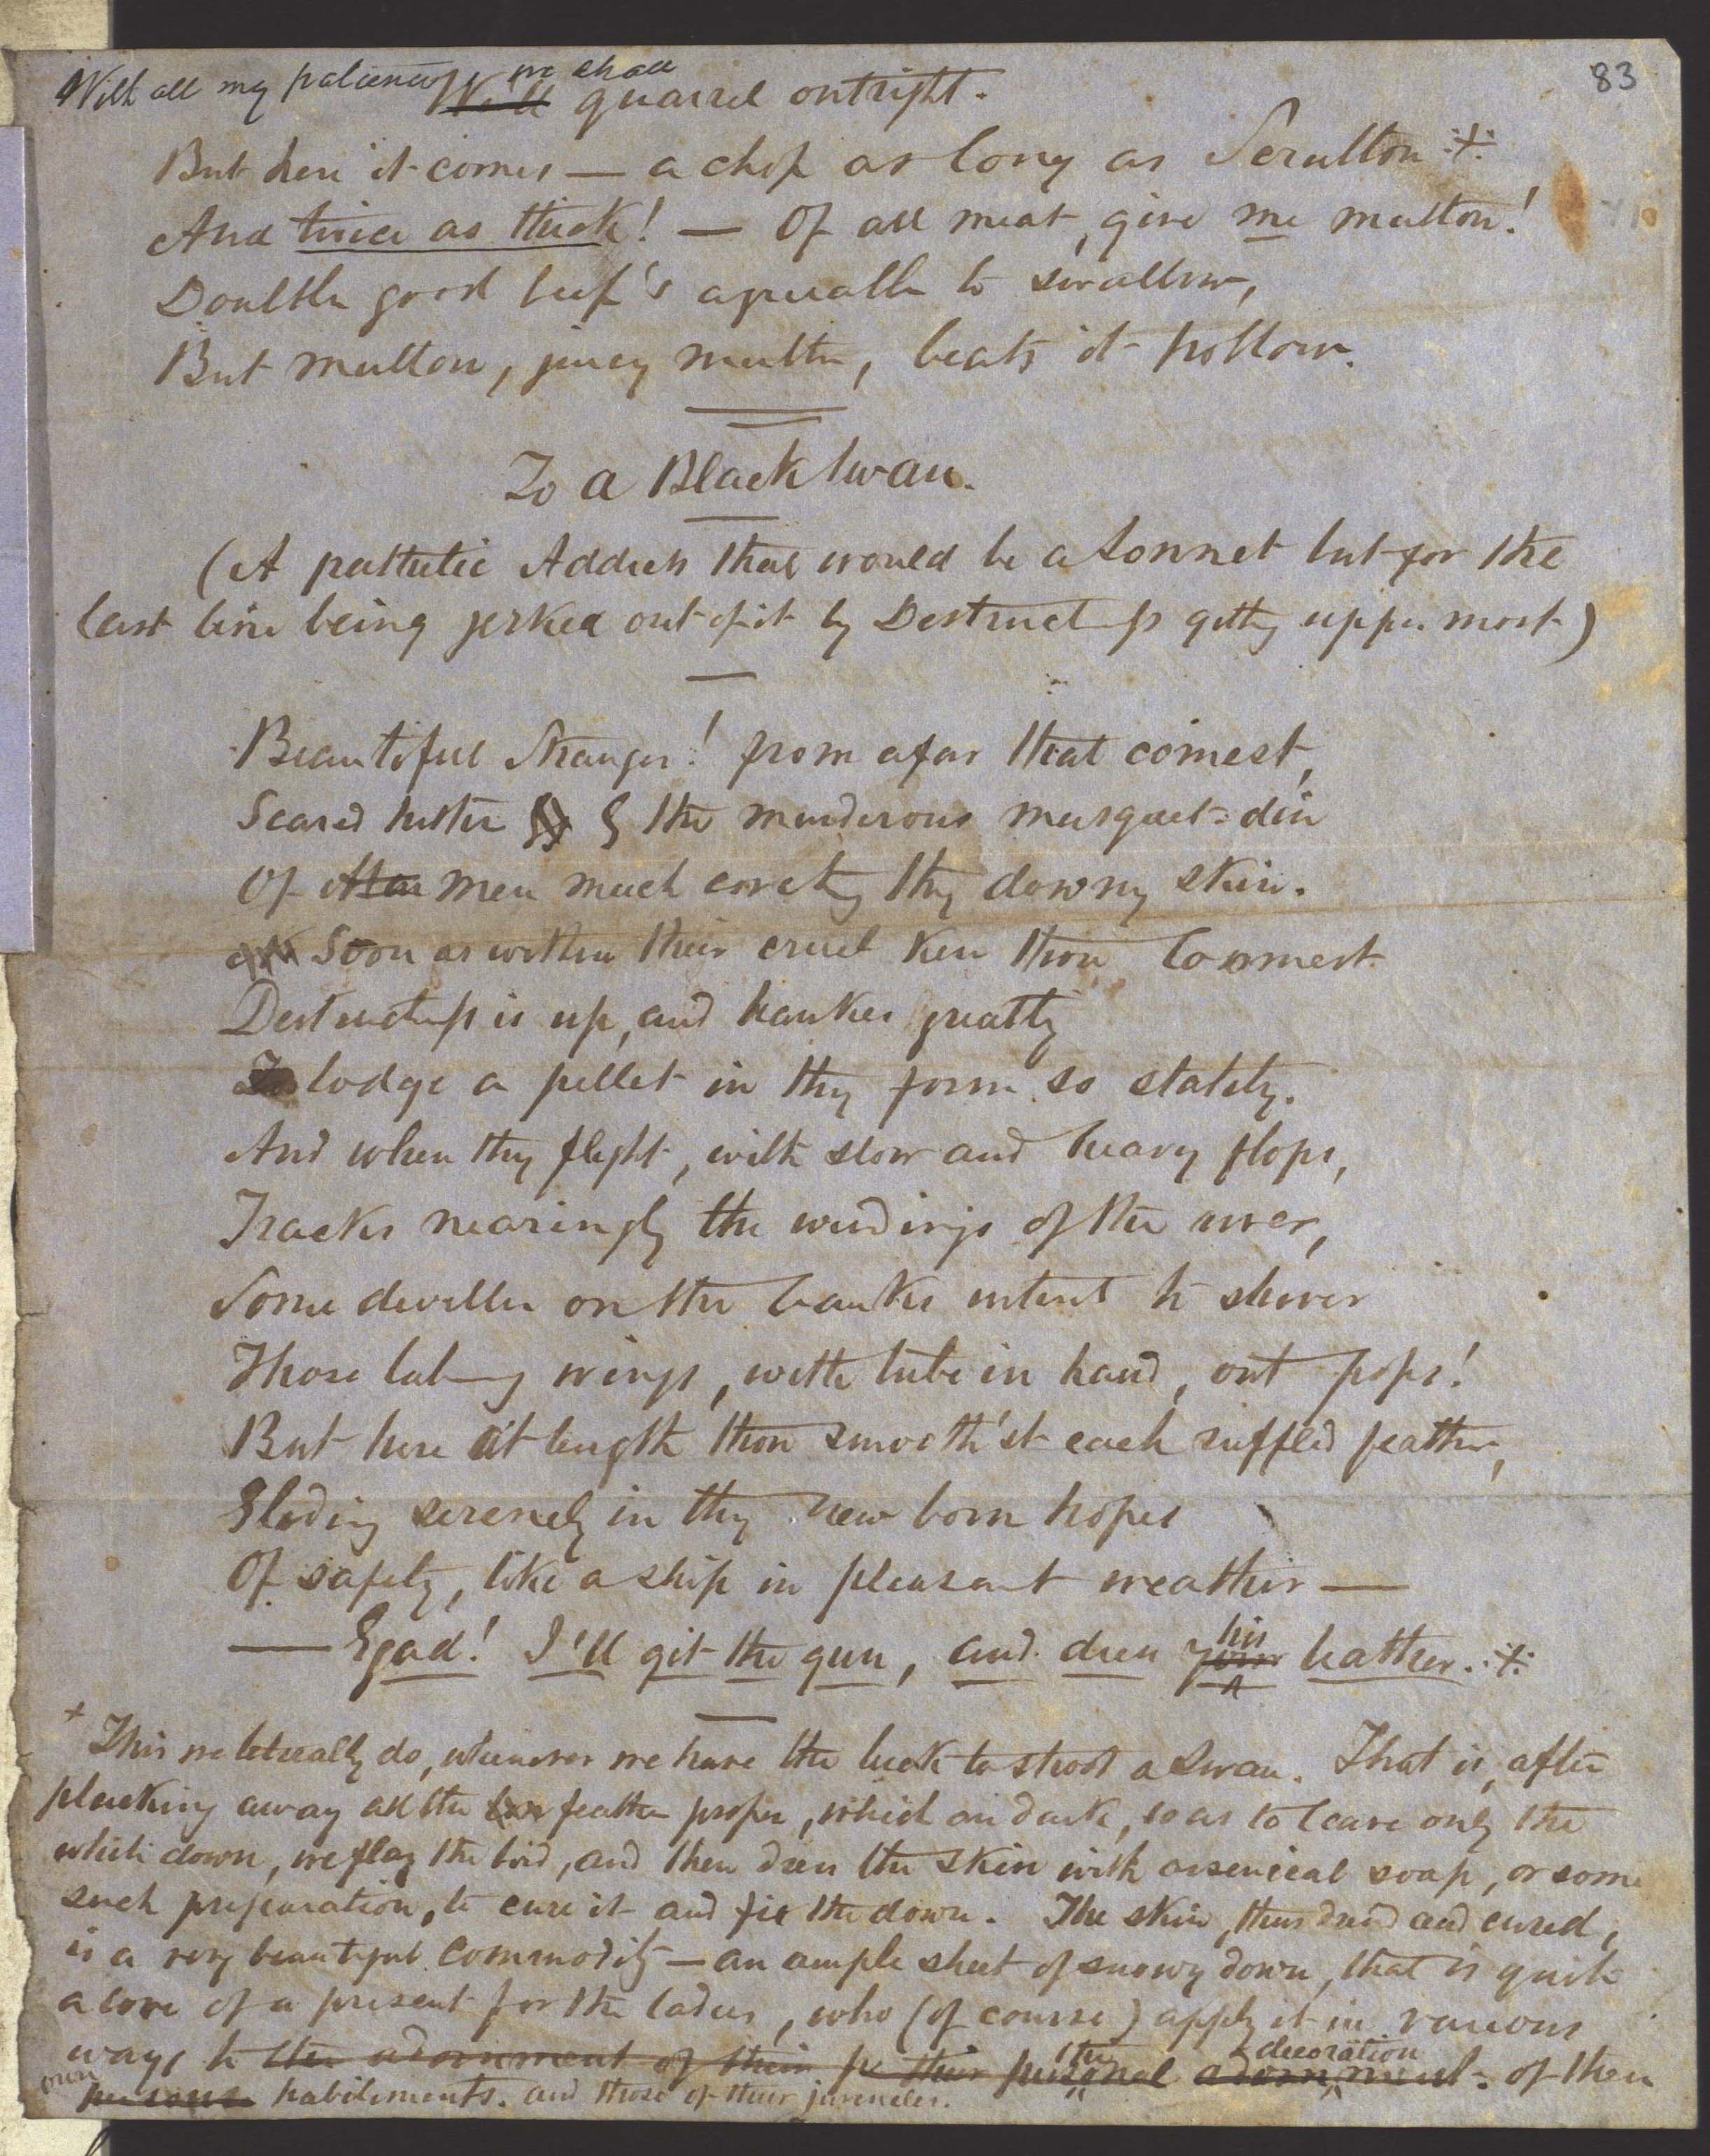 83
With all my patience, we shall
Well quarrel outright.
But here it comes — a chop as long as Scrutton ·+·
And twice as thick! — Of all meat, give me mutton!
Doubtless good beef's agreeable to swallow,
But mutton, juicy mutton, beats it hollow.
To a Black Swan.
(A pathetic Address that would be a Sonnet but for the
last line being jerked out of it by Destructs getting uppermost)
Beautiful Stranger! from afar that comest,
Scared hither by the murderous musquet-din
Of men much coveting thy downy skin.
Soon as within their cruel ken thou loomest
Destructs is up, and hankers greatly
To lodge a pellet in thy form so stately.
And when thy flight, with slow and heavy flops,
Tracks nearingly the windings of the river,
Some dweller on the banks intent to shiver
Those labouring wings, with tube in hand, out pops!
But here at length thou smooth'st each ruffled feather,
Gliding serenely in thy new born hopes
Of safety, like a ship in pleasant weather —
— Egad! I'll get the gun, and dress your his leather. ·+·
+ This we literally do, whenever we have the luck to shoot a Swan. That is, after
plucking away all the feather proper, which are dark, so as to leave only the
white down, we flay the bird, and then dress the skin with arsenical soap, or some
such preparation, to cure it and fix the down. The skin, thus dried and cured,
is a very beautiful commodity — an ample sheet of snowy down, that is quite
a love of a present for the ladies, who (of course) apply it in various
ways to the adornment of their personal the adornment decoration of their
own persons habiliments. and those of their juveniles.